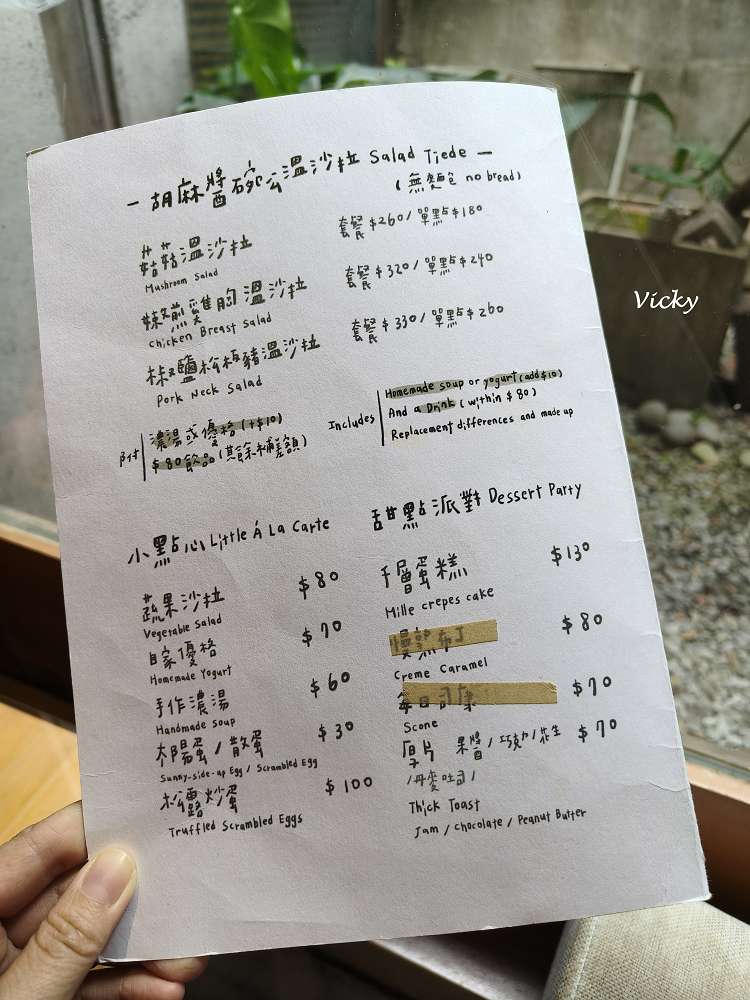 — 胡麻醬碗公溫沙拉 Salad Tiede —
(無麵包 no bread)
菇菇溫沙拉 套餐$260/單點$180
Mushroom Salad
辣煎雞胸溫沙拉 套餐$320/單點$240
Chicken Breast Salad
椒鹽松板豬溫沙拉 套餐$330/單點$260
Pork Neck Salad
附 濃湯或優格(+$10)
$80飲品(其餘補差額)
Includes Homemade soup or yogurt (add $10)
And a Drink (within $80)
Replacement differences and made up
小點心 Little Á La Carte
蔬果沙拉 $80
Vegetable Salad
自家優格 $70
Homemade Yogurt
手作濃湯 $60
Handmade Soup
太陽蛋/散蛋 $30
Sunny-side-up Egg / Scrambled Egg
松露炒蛋 $100
Truffled Scrambled Eggs
甜點派對 Dessert Party
千層蛋糕 $130
Mille crepes cake
布丁 $80
Creme Caramel
每日司康 $70
Scone
厚片 果醬/巧克力/花生 $70
/丹麥吐司/
Thick Toast
Jam / Chocolate / Peanut Butter
Vicky